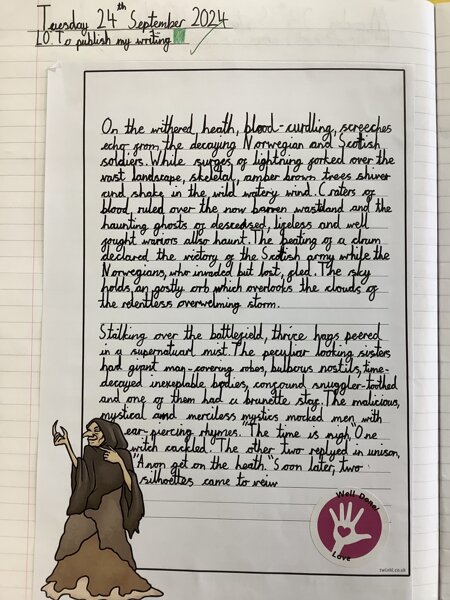 Tuesday 24th September 2024
LO To publish my writing
On the withered heath, blood-curdling, screeches
echo from the decaying Norwegian and Scotish
soldiers. While surges of lightning forked over the
vast landscape, skeletal, amber brown trees shiver
and shake in the wild watery wind. Craters of
blood ruled over the now barren wastland and the
haunting ghosts of descedsed, lifeless and well
fought warriors allso haunt. The beating of a drum
declared the victory of the Scotish army while the
Norwegians, who invaded but lost, fled. The sky
holds, an gostly orb which overlooks the clouds of
the relentless overwelming storm.
Stalking over the battlefield, thrice hags peered
in a supernatuarl mist. The peculyar looking sisters
had giant man-covering robes, bulbous nostils, time-
decayed inexeplable bodies, confound snuggler-toothed
and one of them had a brunette stag. The malicious,
mystical and merciless mystics mocked men with
ear-piercing rhymes. "The time is nigh" One
witch cackled. The other two replyed in unison,
"Anon get on the heath." Soon later, two
silhoettes came to veiw
Well Done!
Love
twinkl.co.uk